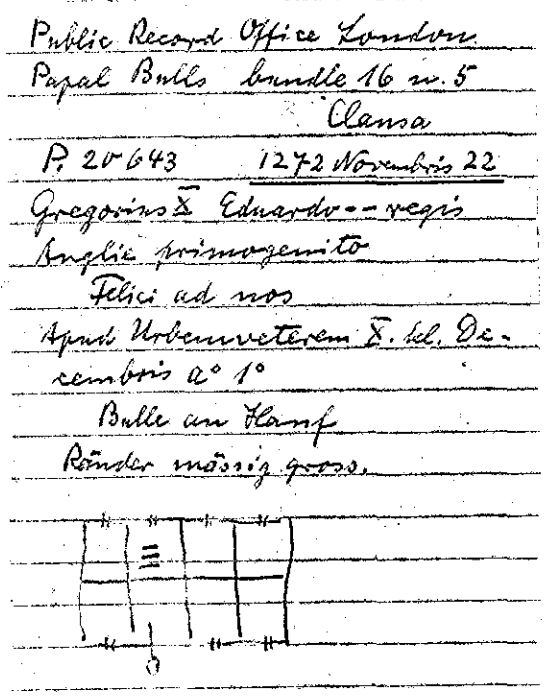 Public Record Office London
Papal Bulls bundle 16 n. 5
Clausa
P. 20643 1272 Novembris 22
Gregorius X Eduardo -- regis
Anglie primogenito
Felici ad nos
Apud Urbemveterem X. kl. De-
cembris a° 1°
Bulle an Hanf
Ränder mässig gross.